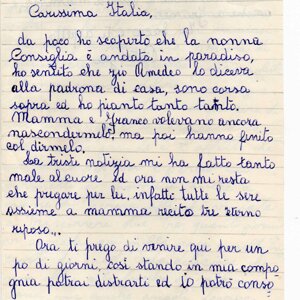 Carissima Italia,
da poco ho scoperto che la nonna
Consiglia è andata in paradiso,
ho sentito che zio Amedeo lo diceva
alla padrona di casa, sono corsa
sopra ed ho pianto tanto tanto.
Mamma e Franco volevano ancora
nascondermelo ma poi hanno finito
col dirmelo.
La triste notizia mi ha fatto tanto
male al cuore ed ora non mi resta
che pregare per lei, infatti tutte le sere
assieme a mamma recito tre eterno
riposo...
Ora ti prego di venire qui per un
po di giorni, così stando in mia compa
gnia potrai distrarti ed io potrò conso